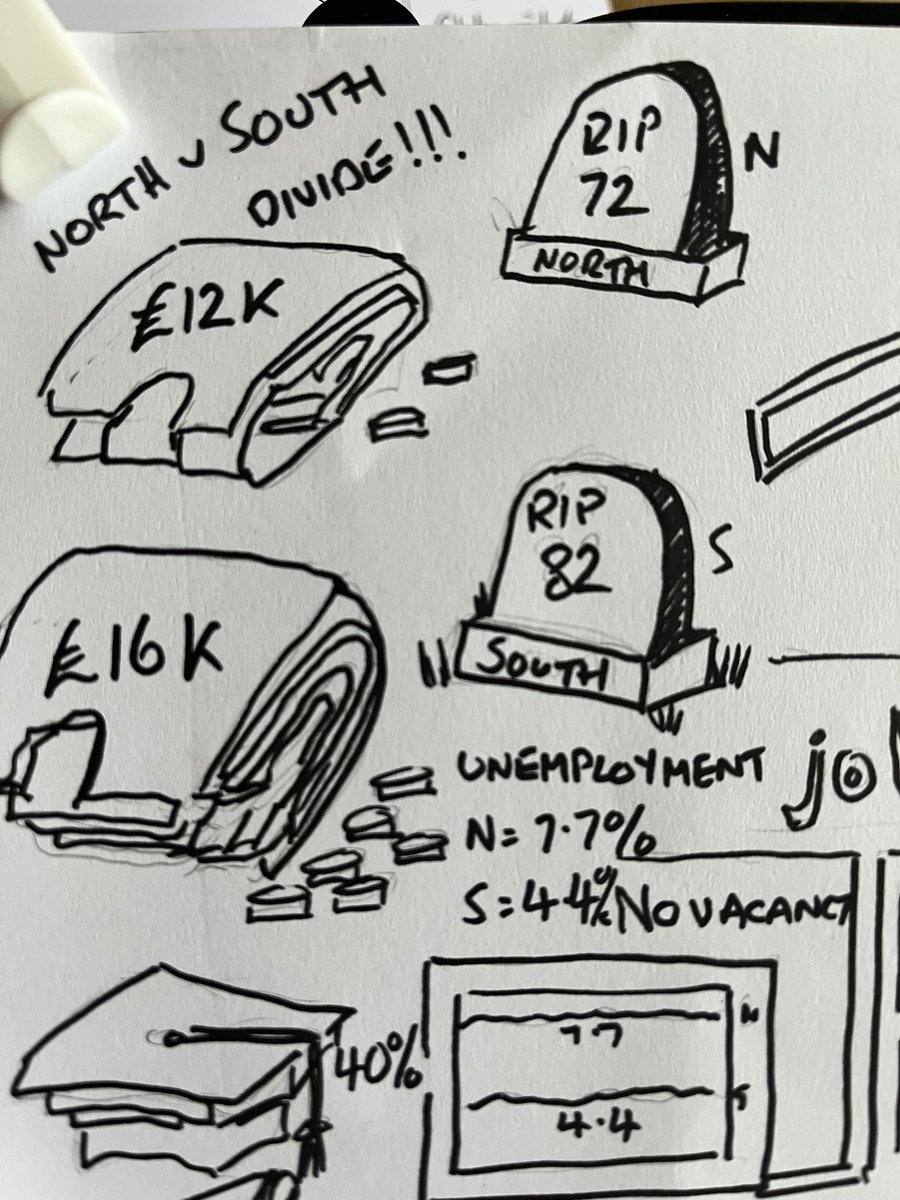 NORTH v SOUTH
DIVIDE!!!
RIP
72
NORTH
N
£12K
RIP
82
SOUTH
S
£16K
UNEMPLOYMENT
N = 7.7%
S = 4.4%
jo
NO VACANCY
40%
7.7
N
4.4
S